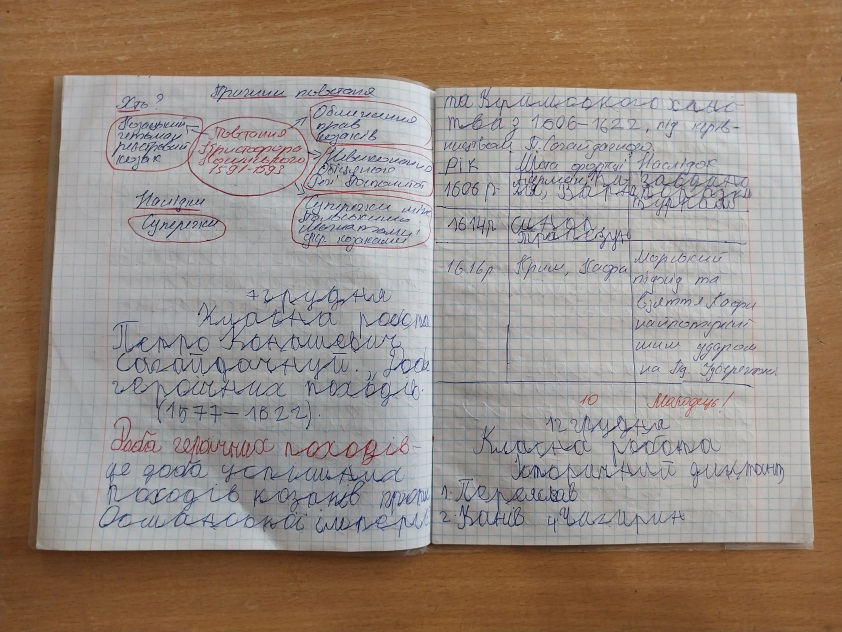 Причини повстання
Хто?
Козацький
гетьман
реєстровий
козак
Повстання
Криштофора
Косинського
1591-1593
Обмеження
прав
козаків
Невиконання
обіцяного
Речі Посполитої
Суперечки між
польськими
магнатами і
укр. козаками
Наслідки
Суперечки
7 грудня
Класна робота
Петро Конашевич
Сагайдачний. Доба
героїчних походів.
(1577-1622).
Доба героїчних походів-
це доба успішних
походів козаків проти
Османської імперії
та Кримського ханс-
тва з 1606-1622, під керів-
ництвом П. Сагайдачного
Рік
Наслідок
1606р.
Варна
1614р
Синоп
Трапезунд
1616р
Крим, Кафа
Морський
похід та
взяття Кафи
на Пд. Узбережжі
ударом
10 Молодець!
12 грудня
Класна робота
Історичний диктант
1. Переяслав
2. Канів 4. Чигирин